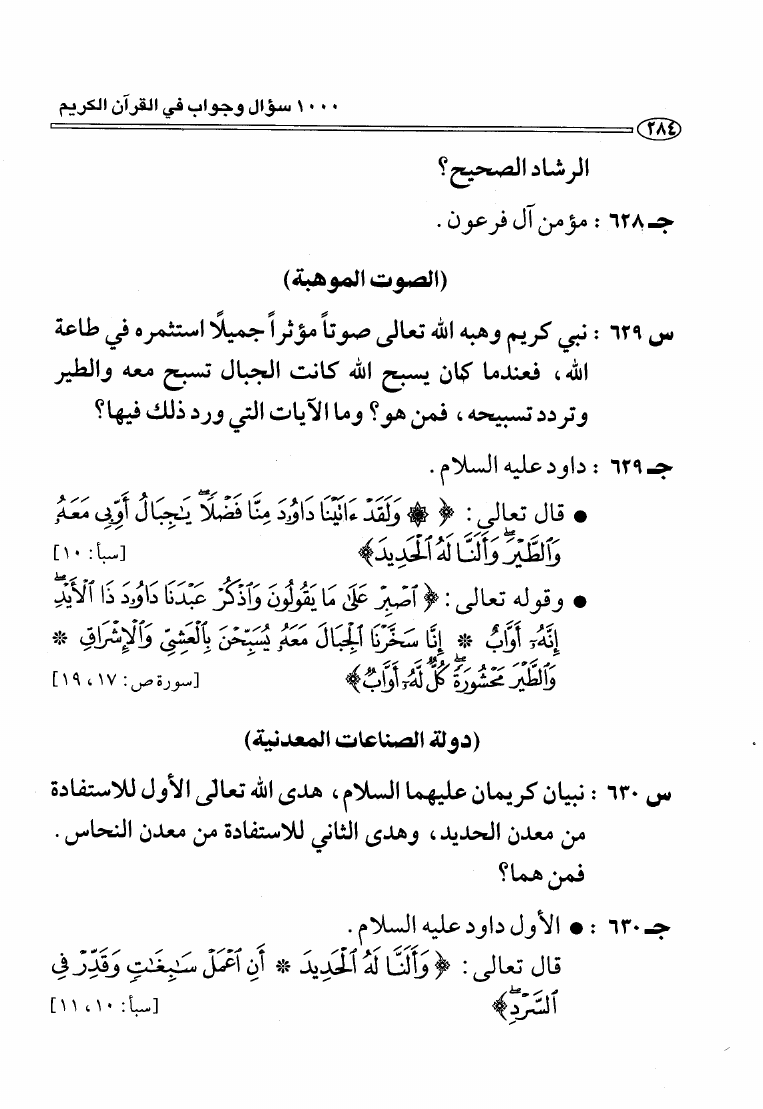 ١٠٠٠ سؤال وجواب في القرآن الكريم
٢٨٤
الرشاد الصحيح؟
جـ ٦٢٨ : مؤمن آل فرعون .
(الصوت الموهبة)
س ٦٢٩ : نبي كريم وهبه الله تعالى صوتاً مؤثراً جميلاً استثمره في طاعة
الله، فعندما كان يسبح الله كانت الجبال تسبح معه والطير
وتردد تسبيحه، فمن هو؟ وما الآيات التي ورد ذلك فيها؟
جـ ٦٢٩ : داود عليه السلام .
● قال تعالى: ﴿ ۞ وَلَقَدْ ءَاتَيْنَا دَاوُۥدَ مِنَّا فَضْلًا ۖ يَٰجِبَالُ أَوِّبِى مَعَهُۥ
وَٱلطَّيْرَ ۖ وَأَلَنَّا لَهُ ٱلْحَدِيدَ﴾ [سبأ: ١٠]
● وقوله تعالى: ﴿ ٱصْبِرْ عَلَىٰ مَا يَقُولُونَ وَٱذْكُرْ عَبْدَنَا دَاوُۥدَ ذَا ٱلْأَيْدِ ۖ
إِنَّهُۥٓ أَوَّابٌ * إِنَّا سَخَّرْنَا ٱلْجِبَالَ مَعَهُۥ يُسَبِّحْنَ بِٱلْعَشِىِّ وَٱلْإِشْرَاقِ *
وَٱلطَّيْرَ مَحْشُورَةً ۖ كُلٌّ لَّهُۥٓ أَوَّابٌ﴾ [سورة ص: ١٧، ١٩]
(دولة الصناعات المعدنية)
س ٦٣٠ : نبيان كريمان عليهما السلام، هدى الله تعالى الأول للاستفادة
من معدن الحديد، وهدى الثاني للاستفادة من معدن النحاس .
فمن هما؟
جـ ٦٣٠ : ● الأول داود عليه السلام .
قال تعالى: ﴿ وَأَلَنَّا لَهُ ٱلْحَدِيدَ * أَنِ ٱعْمَلْ سَٰبِغَٰتٍ وَقَدِّرْ فِى
ٱلسَّرْدِ ۖ﴾ [سبأ: ١٠، ١١]